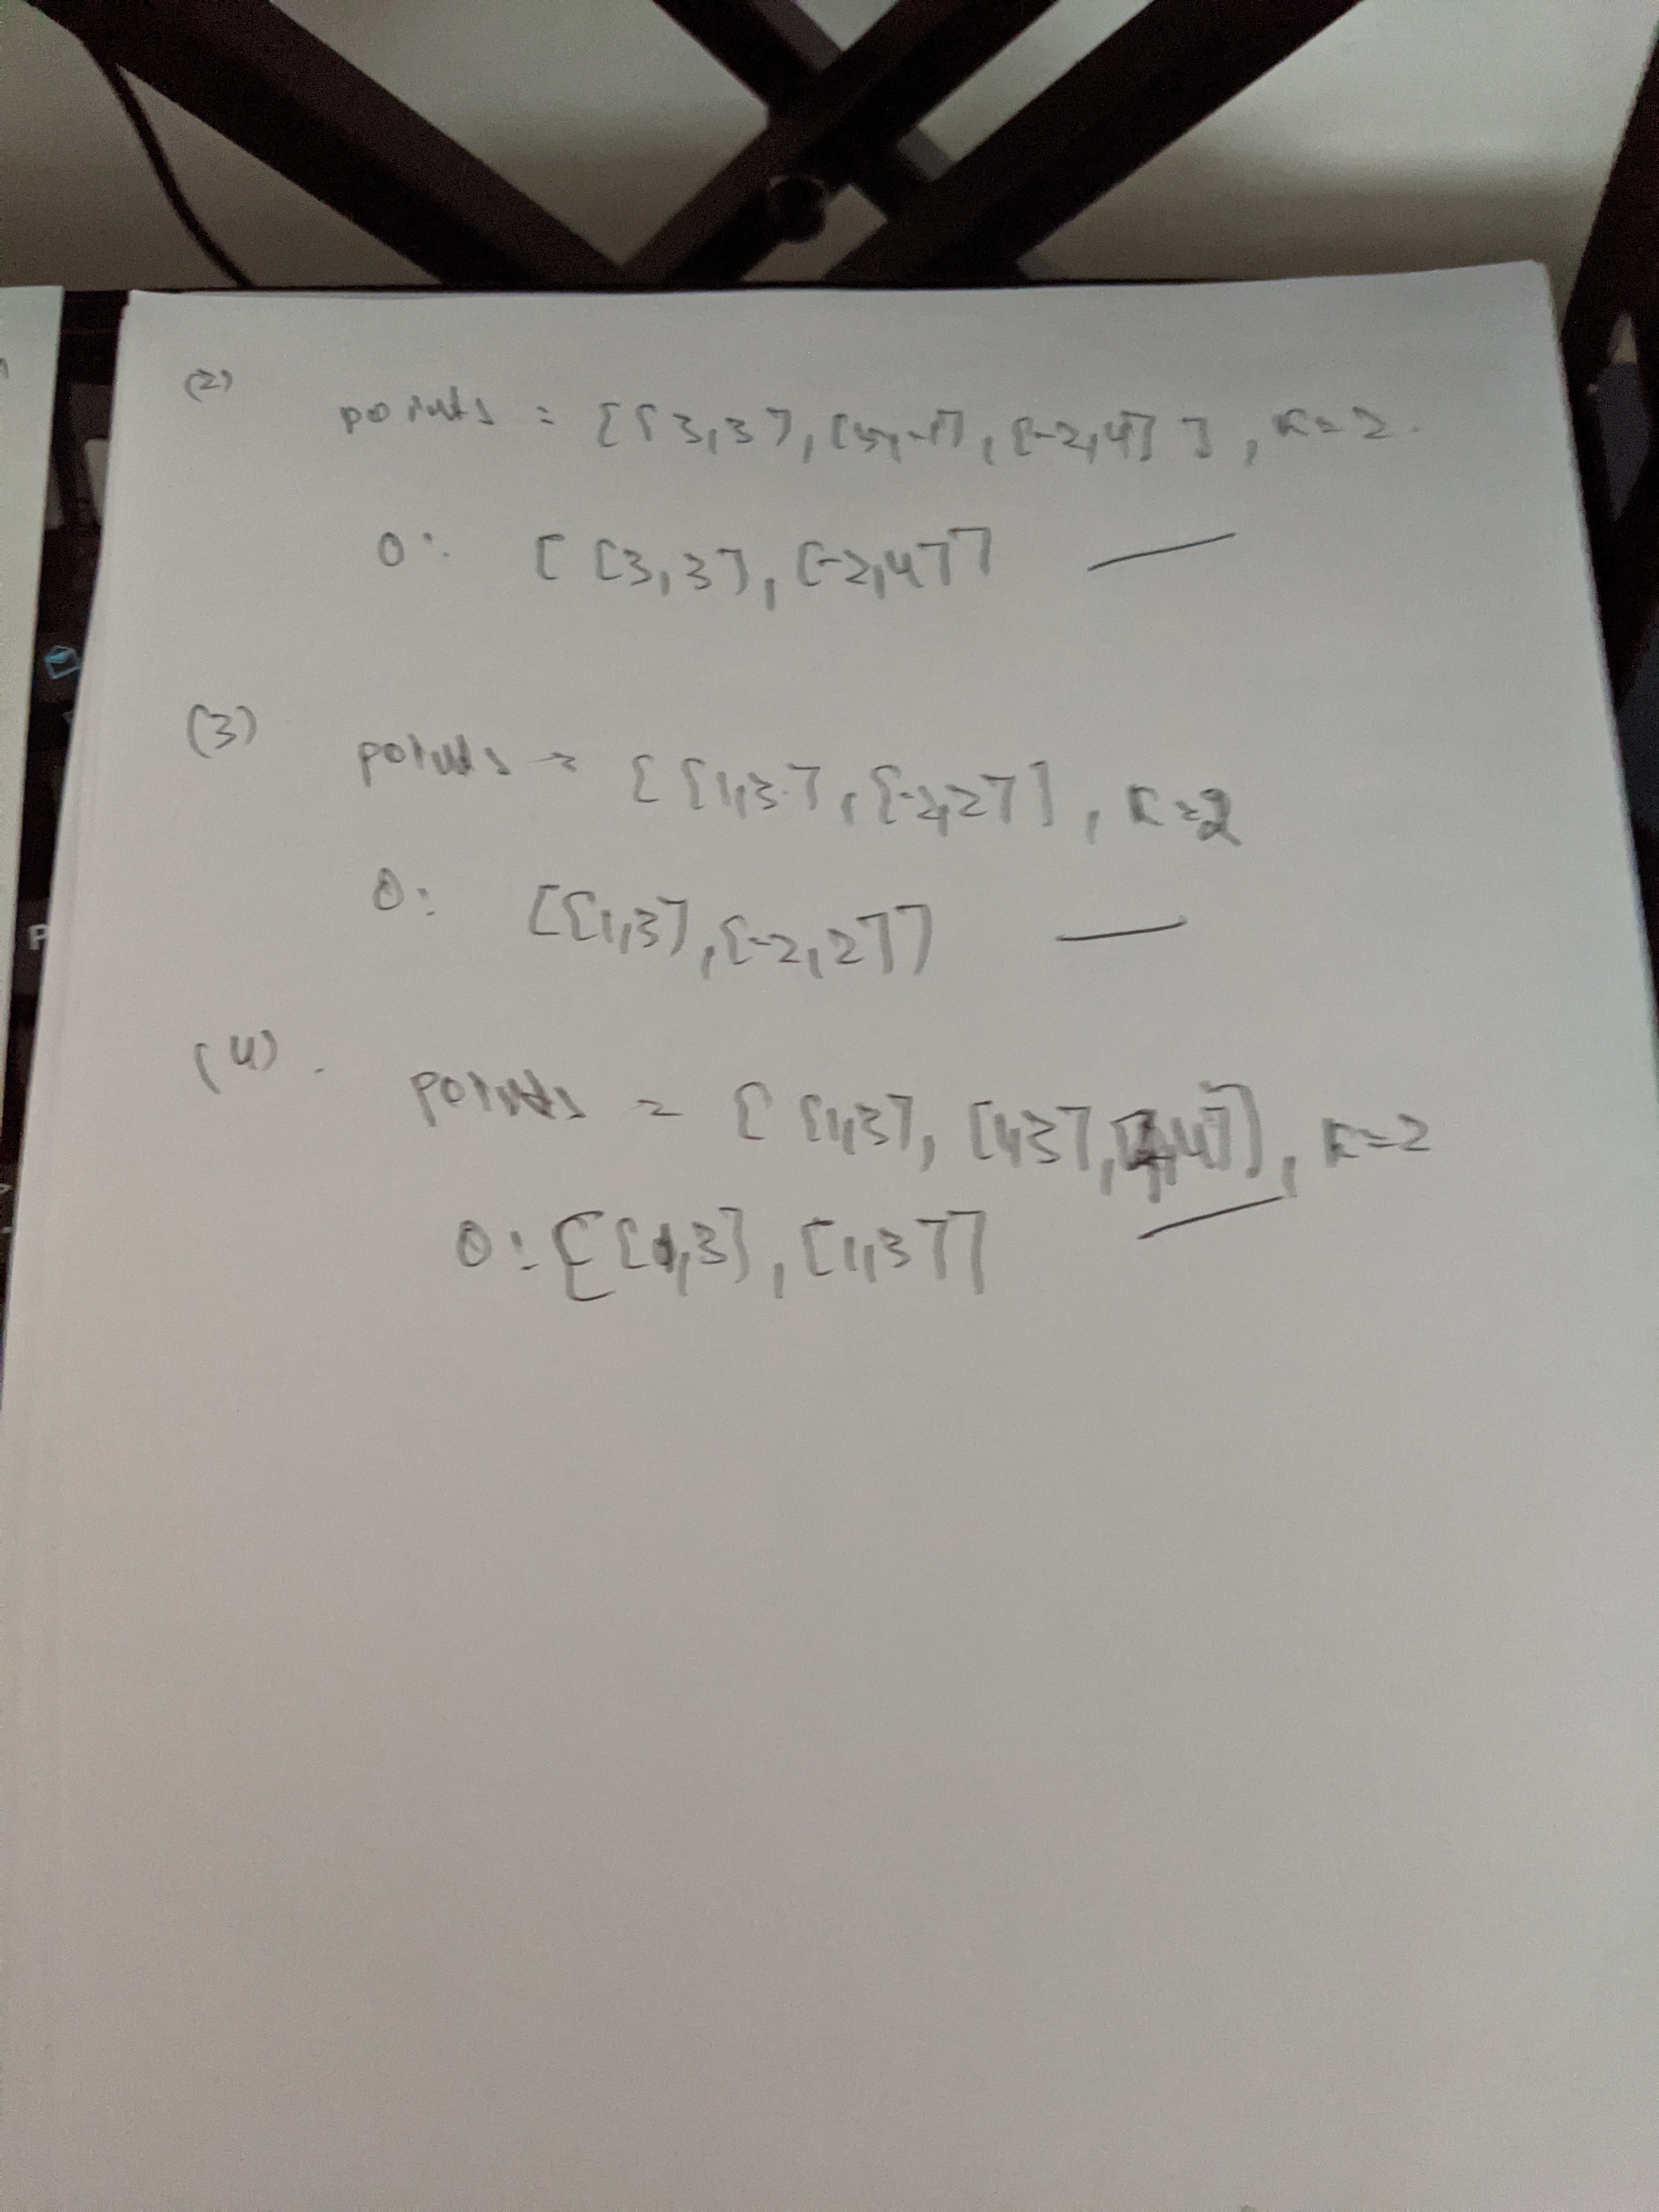 (2)
points = [[3,3], [5,-1], [-2,4]], K=2.
O: [[3,3], [-2,4]]
(3)
points = [[1,3], [-2,2]], K=2
O: [[1,3], [-2,2]]
(4).
points = [[1,3], [1,3], [2,4]], K=2
O: [[1,3], [1,3]]
P